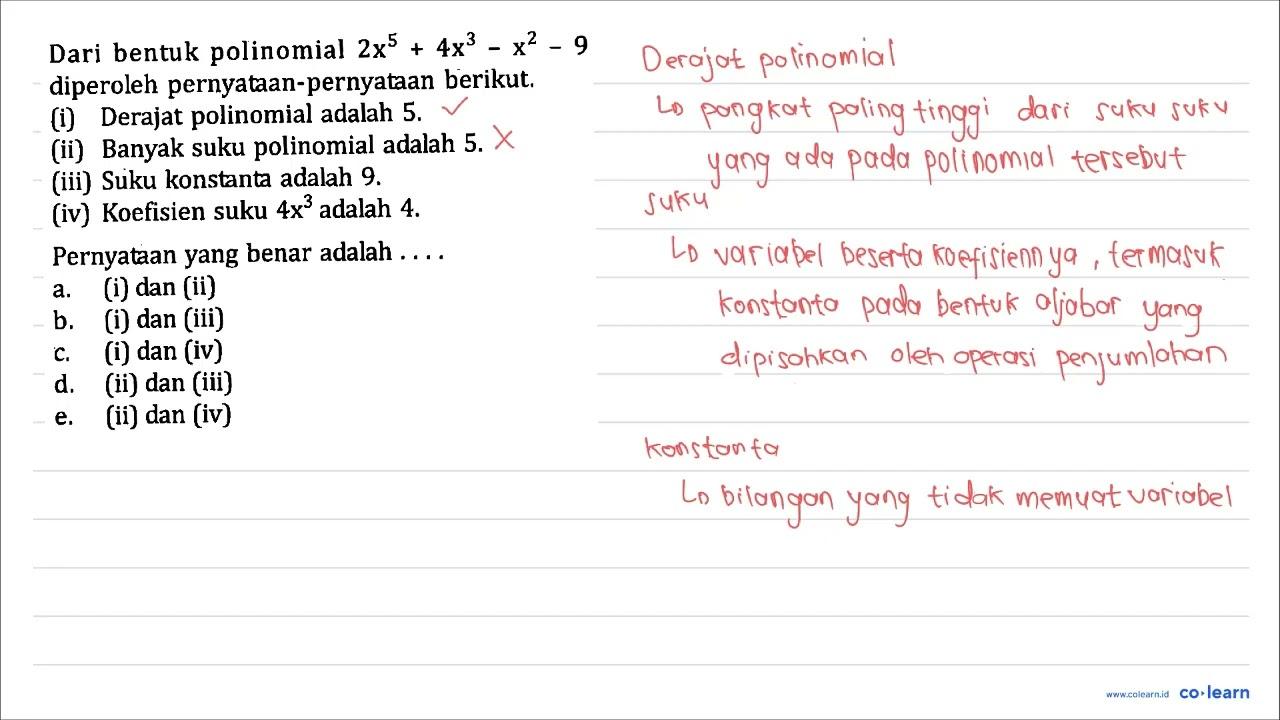 Dari bentuk polinomial 2x⁵ + 4x³ − x² − 9
diperoleh pernyataan-pernyataan berikut.
(i) Derajat polinomial adalah 5. ✓
(ii) Banyak suku polinomial adalah 5. X
(iii) Suku konstanta adalah 9.
(iv) Koefisien suku 4x³ adalah 4.
Pernyataan yang benar adalah . . . .
a. (i) dan (ii)
b. (i) dan (iii)
c. (i) dan (iv)
d. (ii) dan (iii)
e. (ii) dan (iv)
Derajat polinomial
↳ pangkat paling tinggi dari suku suku
yang ada pada polinomial tersebut
suku
↳ variabel beserta koefisiennya, termasuk
konstanta pada bentuk aljabar yang
dipisahkan oleh operasi penjumlahan
konstanta
↳ bilangan yang tidak memuat variabel
www.colearn.id co·learn